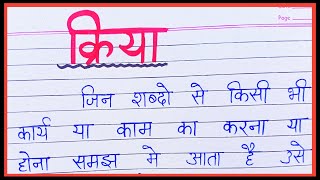 Page
क्रिया
जिन शब्दो से किसी भी
कार्य या काम का करना या
होना समझ मे आता है उसे